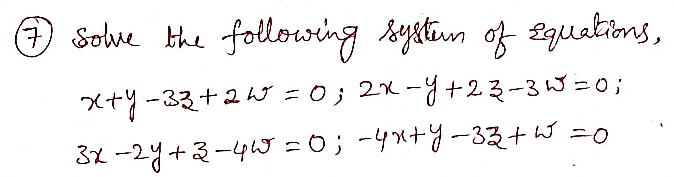 ⑦ Solve the following system of equations,
x+y-3z+2w=0; 2x-y+2z-3w=0;
3x-2y+z-4w=0; -4x+y-3z+w=0